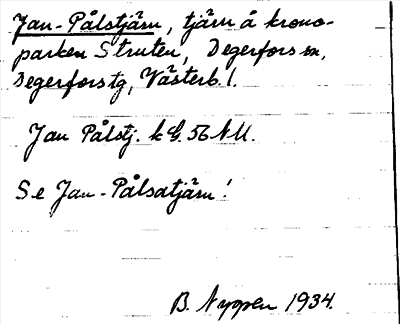 Jan-Pålstjärn, tjärn å krono-
parken Struten, Degerfors sn,
Degerfors tg, Västerb. l.
Jan Pålstj. k G. 56 NU.
Se Jan-Pålsatjärn!
B. Nyqen 1934.